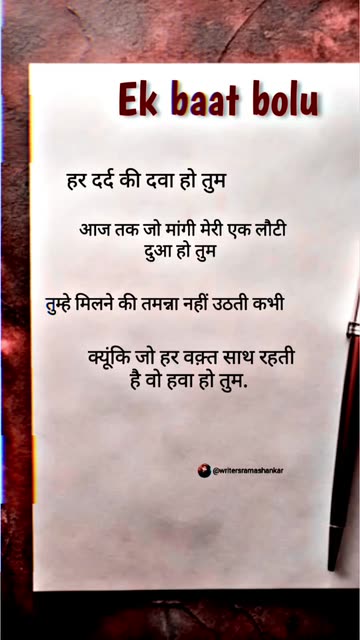 Ek baat bolu
हर दर्द की दवा हो तुम
आज तक जो मांगी मेरी एक लौटी
दुआ हो तुम
तुम्हे मिलने की तमन्ना नहीं उठती कभी
क्यूंकि जो हर वक़्त साथ रहती
है वो हवा हो तुम.
@writersramashankar